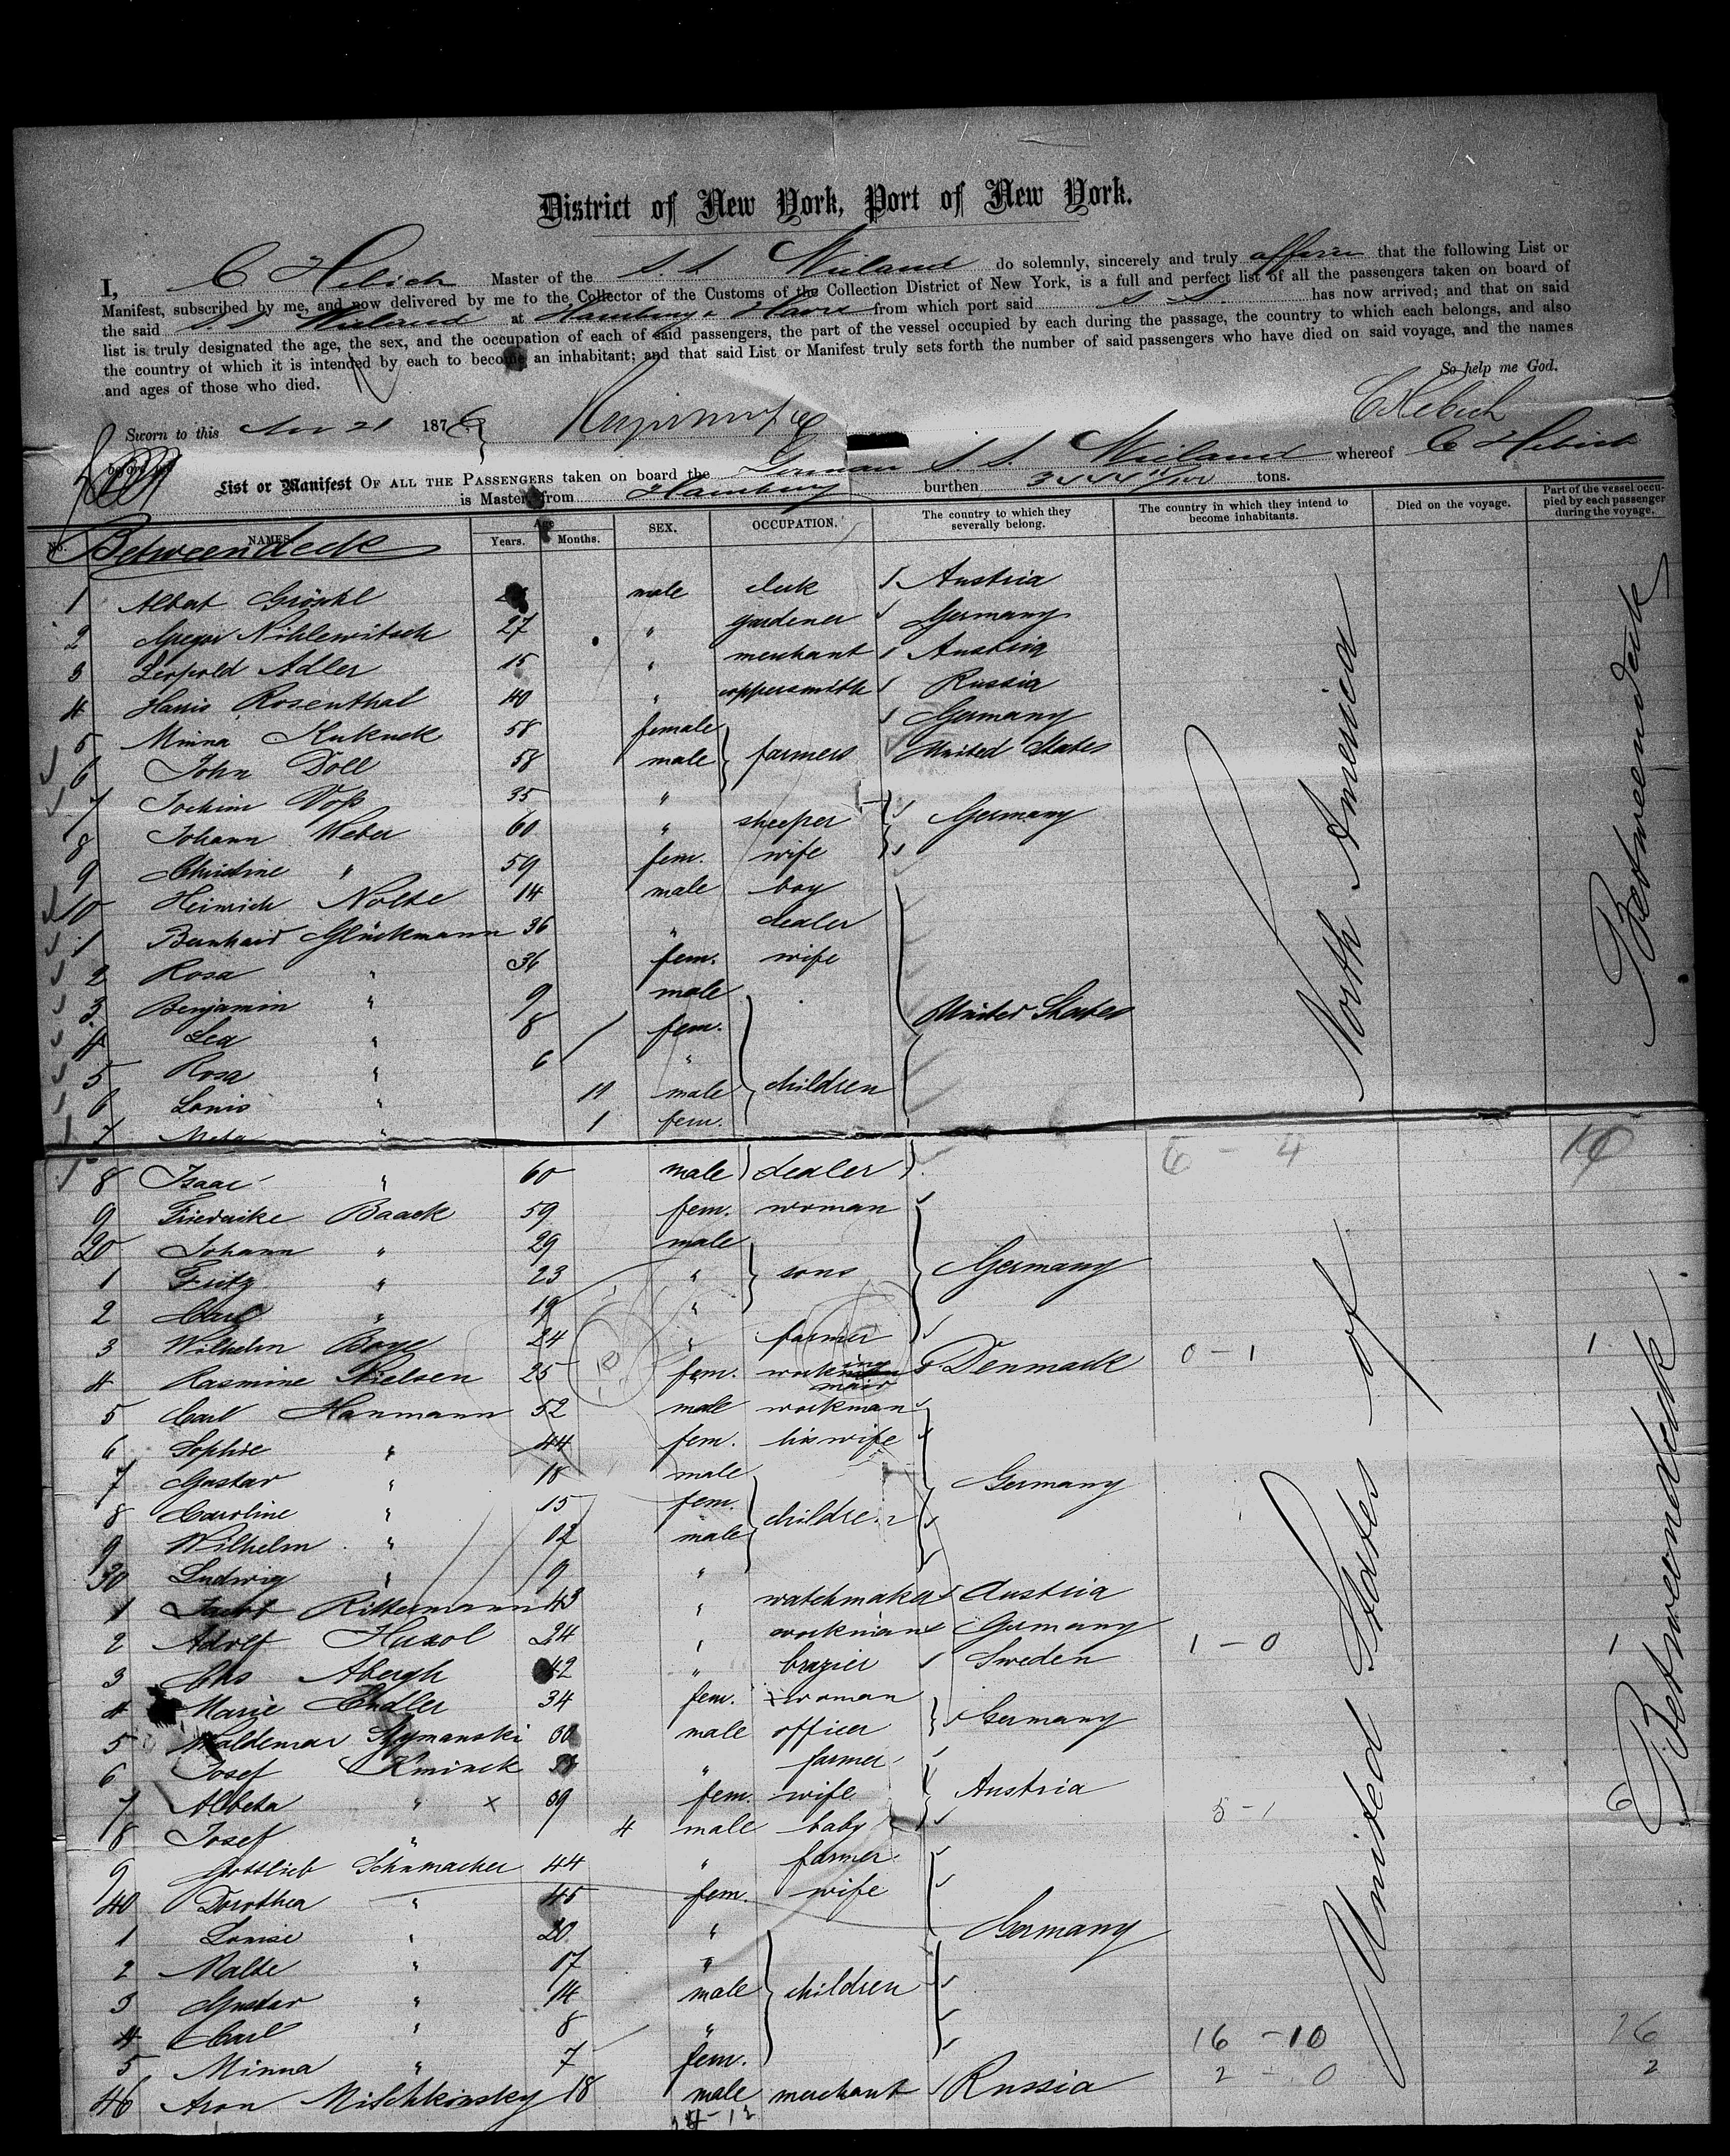 District of New York, Port of New York.
I, C Hebich Master of the S. S. Wieland do solemnly, sincerely and truly affirm that the following List or
Manifest, subscribed by me, and now delivered by me to the Collector of the Customs of the Collection District of New York, is a full and perfect list of all the passengers taken on board of
the said S. S. Wieland at Hamburg & Havre from which port said S. S. has now arrived; and that on said
list is truly designated the age, the sex, and the occupation of each of said passengers, the part of the vessel occupied by each during the passage, the country to which each belongs, and also
the country of which it is intended by each to become an inhabitant; and that said List or Manifest truly sets forth the number of said passengers who have died on said voyage, and the names
and ages of those who died. So help me God.
Sworn to this Nov 21 1876 C Hebich
before me
List or Manifest OF ALL THE PASSENGERS taken on board the German S. S. Wieland whereof C Hebich
is Master, from Hamburg burthen tons.
No. NAMES. Age Years. Months. SEX. OCCUPATION. The country to which they severally belong. The country in which they intend to become inhabitants. Died on the voyage. Part of the vessel occupied by each passenger during the voyage.
Betweendeck
1 Albert male clerk Austria
2 Gregor Nihlewitsch 27 " gardener Germany
3 Leopold Adler 15 " merchant Austria
4 Harris Rosenthal 40 " coppersmith Russia
5 Minna Kukuck 58 female Germany
6 John Doll 58 male farmers United States
7 Jochim Voß 35 "
8 Johann Weber 60 " Germany
9 Christine " 59 fem. wife
10 Heinrich Nolte 14 male boy
1 Bernhard Glückmann 36 " dealer
2 Rosa " 36 fem. wife
3 Benjamin " 9 male
4 Lea " 8 fem. United States
5 Rosa " 6 "
6 Louis " 11 male children
7 Meta " 1 fem.
8 Isaac " 60 male dealer 6 - 4
9 Friedricke Baack 59 fem. woman
20 Johann " 29 male
1 Fritz " 23 " sons Germany
2 Carl " 19 "
3 Wilhelm Boye 24 " farmer
4 Rasmine Nielsen 25 fem. working maid Denmark 0 - 1 1
5 Carl Hanmann 52 male workman
6 Sophie " 44 fem. his wife
7 Gustav " 18 male Germany
8 Caroline " 15 fem. children
9 Wilhelm " 12 male
30 Ludwig " 9 "
1 Jacob Rittermann 43 " watchmaker Austria
2 Adolf 24 " workman Germany
3 Abergh 42 " brazier Sweden 1 - 0 1
4 Marie Endler 34 fem. woman
5 Waldemar Szymanski 30 male officer Germany
6 Josef Kminek " farmer
7 Alberta " x 39 fem. wife Austria
8 Josef " 4 male baby 5 - 1 6
9 Gottlieb Schumacher 44 " farmer
40 Dorothea " 45 fem. wife
1 Louise " 20 " Germany
2 Malte " 17 "
3 Gustav " 14 male children
4 Carl " 8 "
5 Minna " 7 fem. 16 - 10 26
46 Aron Mischkinsky 18 male merchant Russia 2 - 0 2
North America
United States of
Betweendeck
Betweendeck